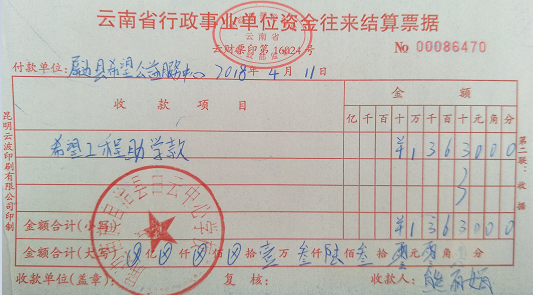 云南省行政事业单位资金往来结算票据
云南省
云财票印第16024号
No 00086470
付款单位: 屏边县希望公益服务中心 2018年4月11日
收款项目 金额
亿千百十万千百十元角分
希望工程助学款 ¥1363000
金额合计(小写) ¥1363000
金额合计(大写) ⊗亿⊗仟⊗佰⊗拾壹万叁仟陆佰叁拾零元零角 分
收款单位(盖章): 复核: 收款人: 熊丽
昆明云波印刷有限公司印制
第二联:收据
自治县白云中心学校